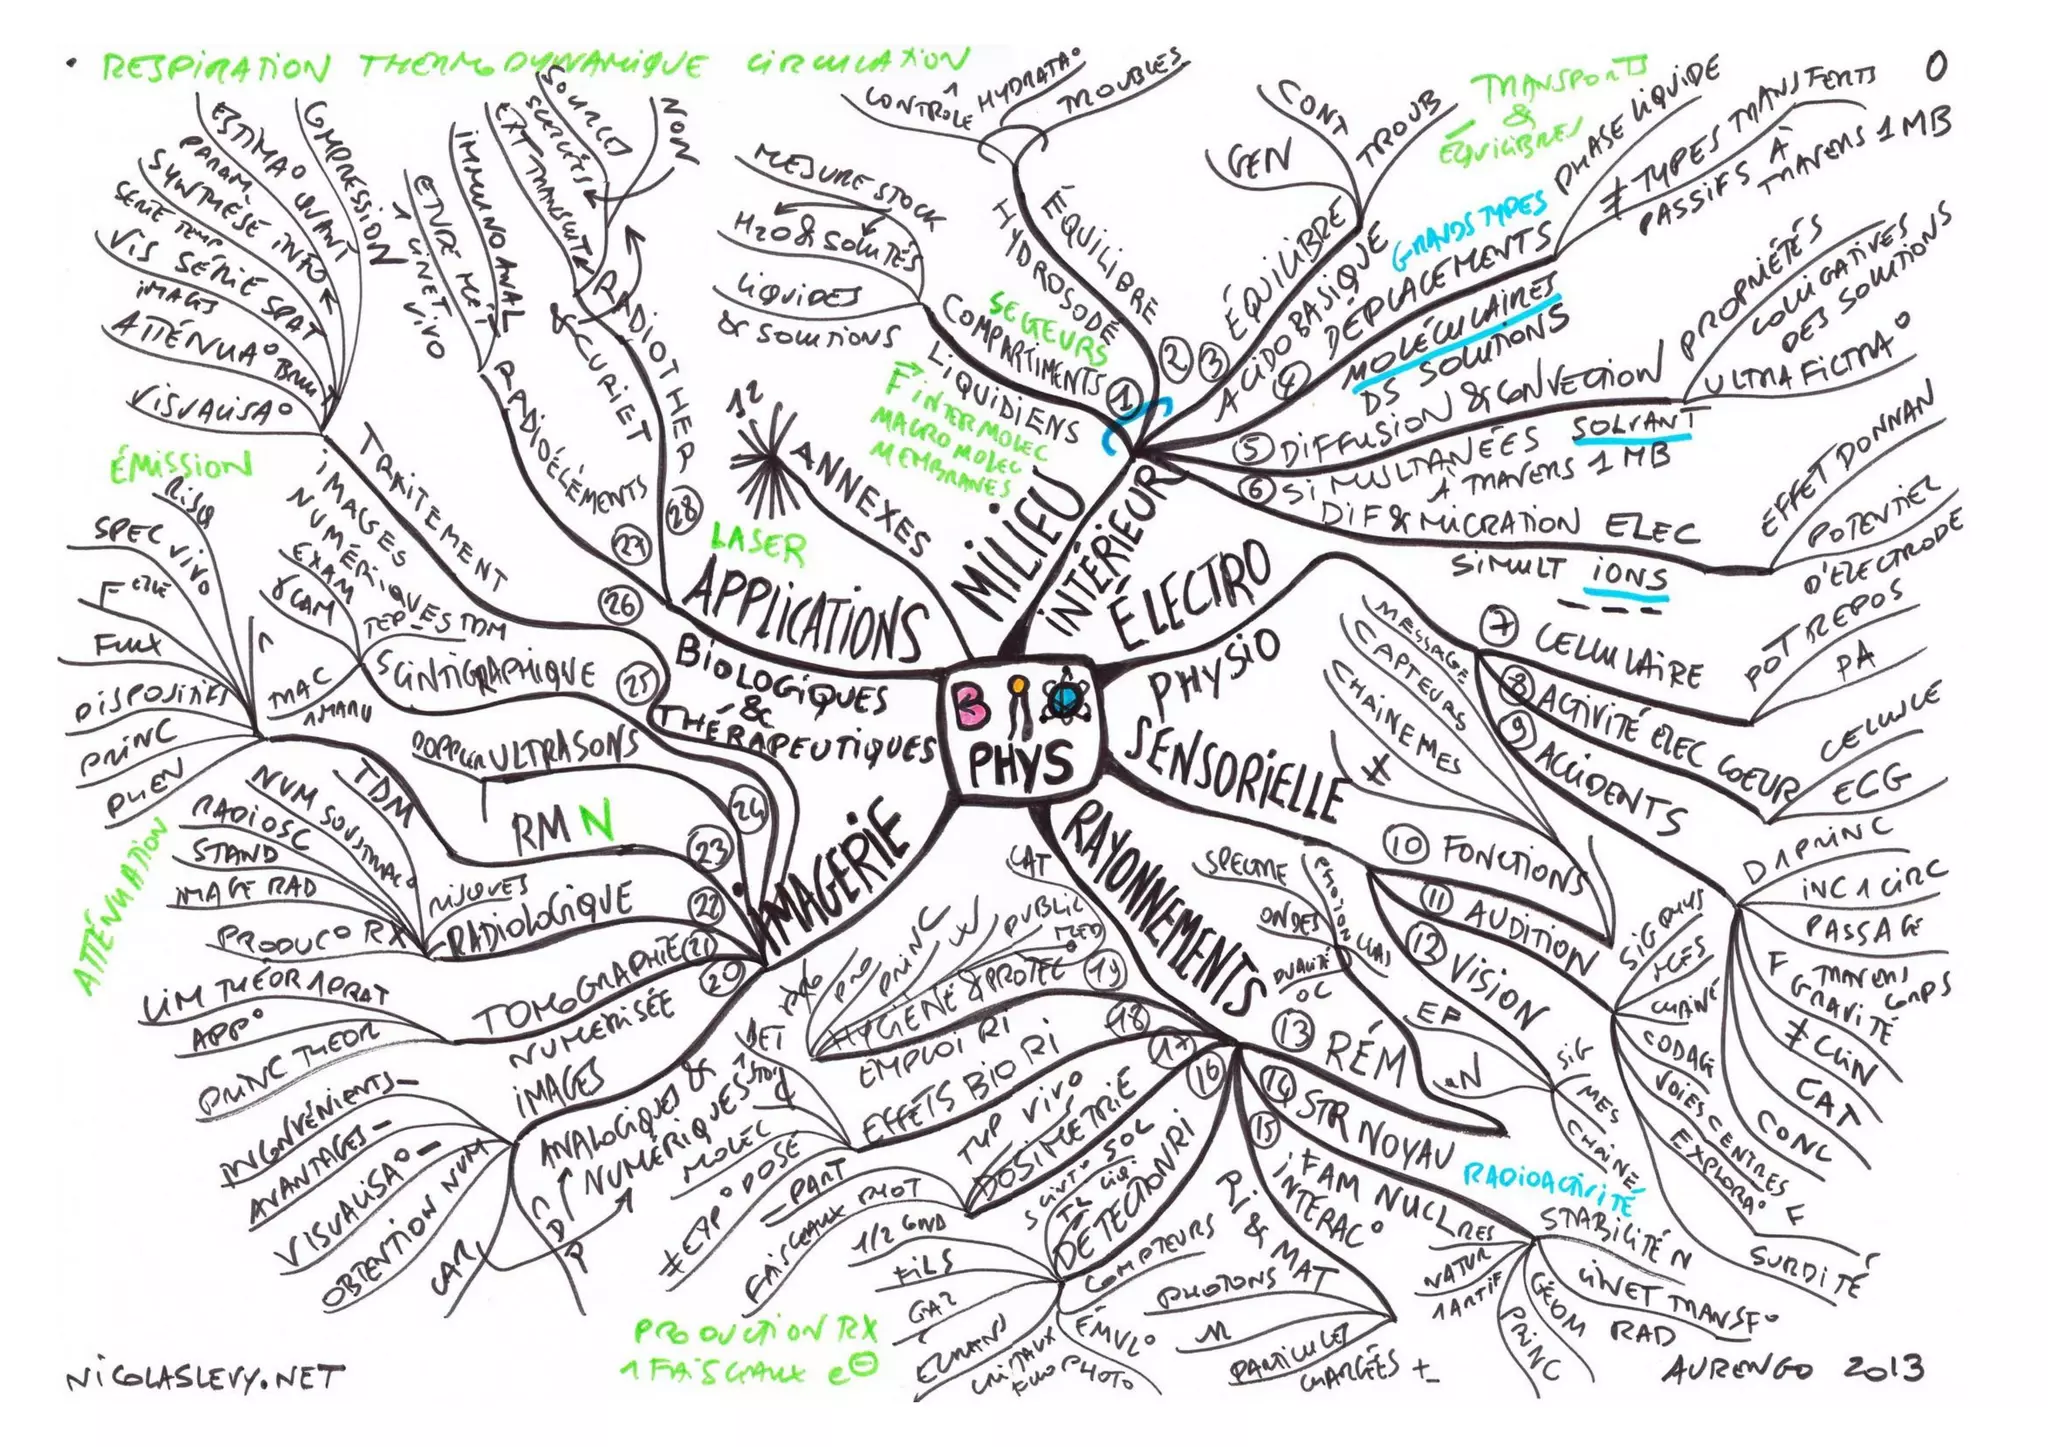 • RESPIRATION THERMODYNAMIQUE CIRCULATION
BIO
PHYS
MILIEU
INTÉRIEUR
SECTEURS
COMPARTIMENTS ①
LIQUIDIENS
MESURE STOCK
H2O & SOLUTÉS
LIQUIDES
& SOLUTIONS
F INTERMOLEC
MACROMOLEC
MEMBRANES
② ÉQUILIBRE
HYDROSODÉ
CONTRÔLE
HYDRATA°
TROUBLES
③ ÉQUILIBRE
ACIDOBASIQUE
GEN
CONT
TROUB
TRANSPORTS
&
ÉQUILIBRES
GRANDS TYPES
④ DÉPLACEMENTS
MOLÉCULAIRES
DS SOLUTIONS
PHASE LIQUIDE
≠ TYPES TRANSFERTS
PASSIFS À
TRAVERS 1 MB
0
⑤ DIFFUSION & CONVECTION
SIMULTANÉES SOLVANT
À TRAVERS 1 MB
PROPRIÉTÉS
COLIGATIVES
DES SOLUTIONS
ULTRAFILTRA°
⑥ DIF & MIGRATION ELEC
SIMULT IONS
EFFET DONNAN
POTENTIEL
D'ELECTRODE
ÉLECTRO
PHYSIO
⑦ CELLULAIRE
POT REPOS
PA
⑧ ACTIVITÉ ELEC COEUR
CELLULE
ECG
⑨ ACCIDENTS
D1 PRINC
INC 1 CIRC
PASSAGE
TRAVERS
CORPS
F GRAVITÉ
≠ CLIN
CAT
CONC
SENSORIELLE
⑩ FONCTIONS
MESSAGE
CAPTEURS
CHAINEMES
≠
⑪ AUDITION
SIG PHYS
MES
CHAINE
CODAGE
VOIES CENTRES
EXPLORA° F
SURDITÉ
⑫ VISION
SIG
MES
CHAINE
RAYONNEMENTS
⑬ RÉM
SPECTRE
ONDES
DUALITÉ
OC
CLAS
EP
⑭ STR NOYAU
FAM NUCL
RADIOACTIVITÉ
STABILITÉ N
CINET TRANSF°
RAD
GÉOM
PRINC
NATUR
1 ARTIF
⑮ INTERAC°
RI & MAT
PHOTONS
N
PARTICULES
CHARGÉES ±
⑯ DÉTECTION RI
COMPTEURS
ÉMUL°
FILS
GAZ
ECRANS
CRISTAUX
1/2 COND
⑰ DOSIMÉTRIE
TYP VIVO
PART
FAISCEAUX PHOT
⑱ EFFETS BIO RI
MOLEC
≠ EXP° DOSE
⑲ HYGIÈNE & PROTEC°
EMPLOI RI
CAT
PUBLIC
MED
PRINC
PRO
IMAGERIE
⑳ IMAGES
ANALOGIQUES &
NUMÉRIQUES
INCONVÉNIENTS -
AVANTAGES -
VISUALISA° -
OBTENTION NUM
CAR
21 TOMOGRAPHIE
NUMERISÉE
LIM THÉOR 1 APRAT
APP°
PRINC THEOR
22 RADIOLOGIQUE
RISQUES
NUM SOUSTRAC°
RADIOSC
STAND
IMAGE RAD
PRODUC° RX
ATTÉNUATION
23 RMN
TDM
ÉMISSION
RISQ
SPEC VIVO
FLUX
DISPOSITIFS
PRINC
PHEN
24 ULTRASONS
DOPPLER
25 SCINTIGRAPHIQUE
TEP
TDM
EXAM
γ CAM
MAC
1 MARQ
26 TRAITEMENT
IMAGES
NUMÉRIQUES
VISUALISA°
ATTÉNUA° BRUIT
IMAGES
VIS SÉRIE SPAT
SERIE TEMP
SYNTHÈSE INFO
PARAM
ESTIMA° QUANT
COMPRESSION
APPLICATIONS
BIOLOGIQUES
&
THÉRAPEUTIQUES
27 RADIOÉLÉMENTS
IMMUNO ANAL
ETUDE MET
1 CINET VIVO
28 RADIOTHERP
& CURIET
EXT TRANSCUT
SOURCES
SCELLÉES
NON
LASER
ANNEXES
12
PRODUCTION RX
1 FAISCEAUX e⊖
NICOLASLEVY.NET
AURENGO 2013